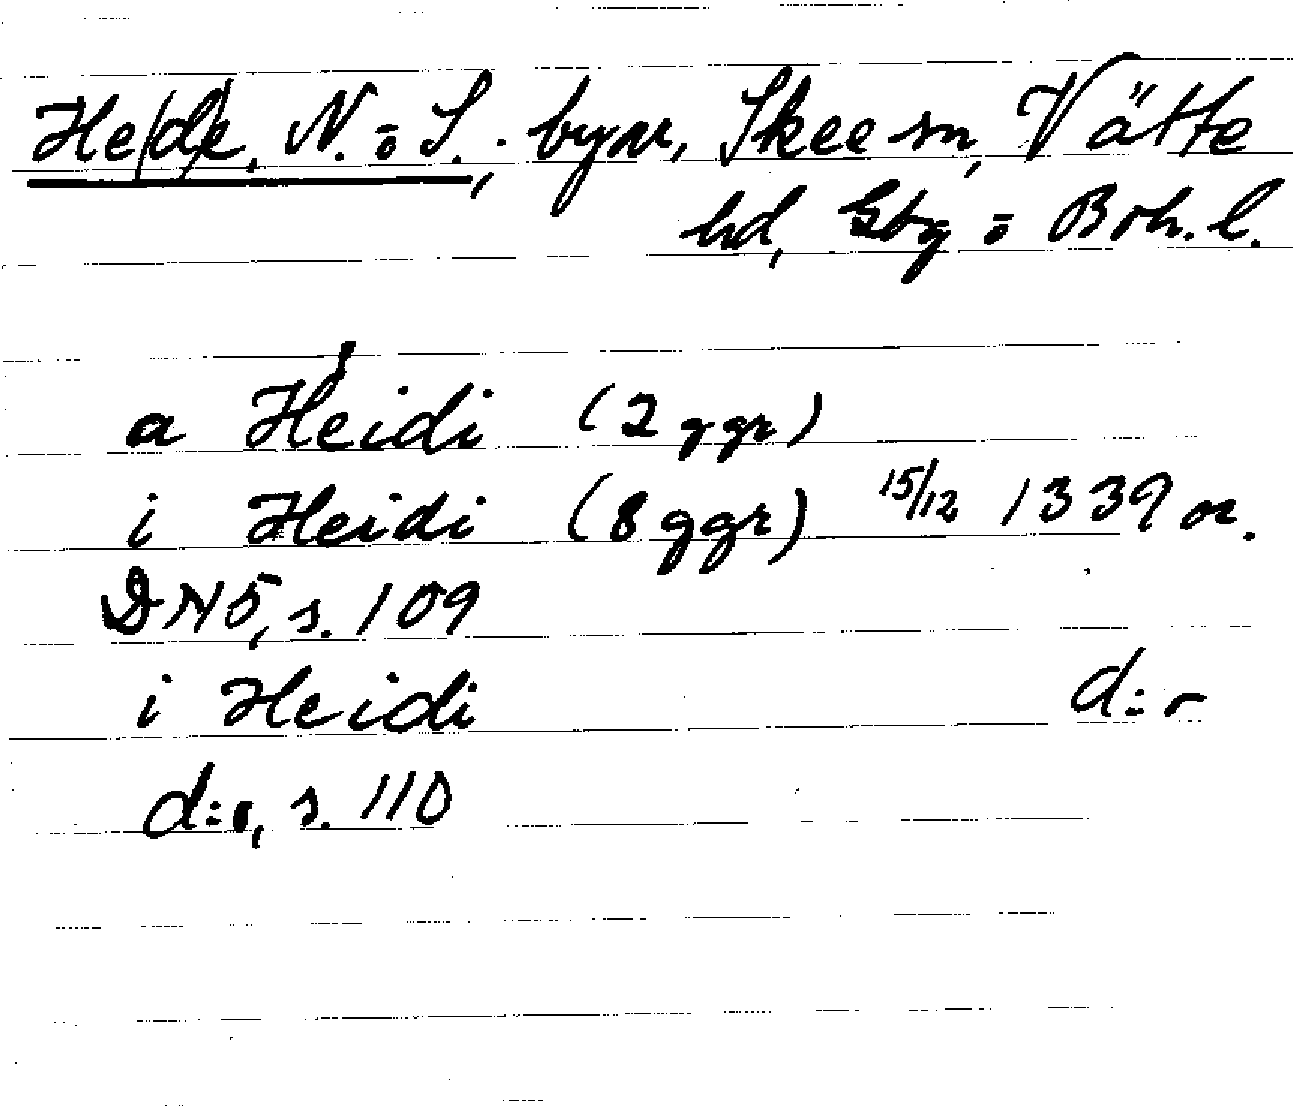 Hede, N. o S., byar, Skee sn, Vätte
hd, Gbg o Boh. l.
a Heidi (2 ggr)
i Heidi (8 ggr) 15/12 1339 or.
DN 5, s. 109
i Heidi d:o
d:o, s. 110